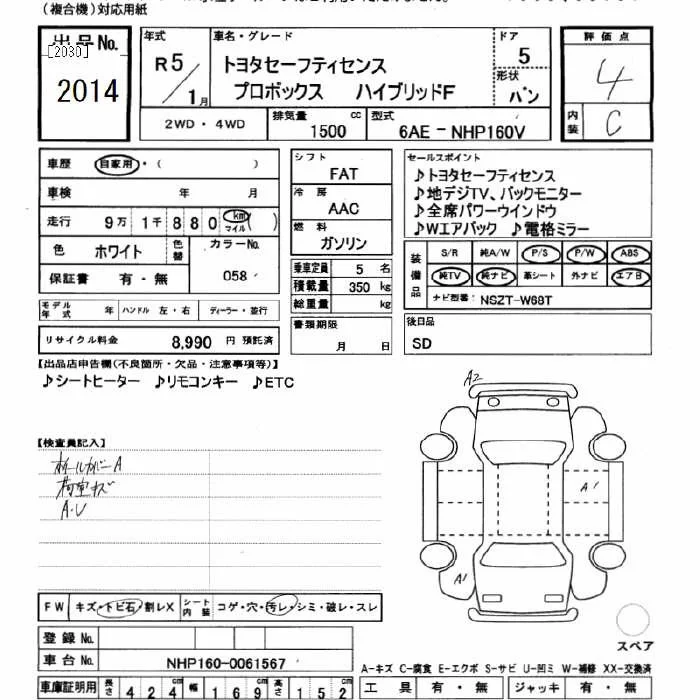 (複合機)対応用紙
出品No. [2030] 2014
年式 R5/1月
車名・グレード トヨタセーフティセンス
プロボックス ハイブリッドF
ドア 5
形状 バン
評価点 4
内装 C
2WD・4WD 排気量 1500 cc 型式 6AE-NHP160V
車歴 自家用・( )
車検 年 月
走行 9万1千880 km マイル ( )
色 ホワイト 色替 カラーNo. 058
保証書 有・無
モデル年式 年 ハンドル 左・右 ディーラー・並行
リサイクル料金 8,990 円 預託済
シフト FAT
冷房 AAC
燃料 ガソリン
乗車定員 5 名
積載量 350 kg
総重量 kg
書類期限 月 日
セールスポイント
♪トヨタセーフティセンス
♪地デジTV、バックモニター
♪全席パワーウインドウ
♪Wエアバック ♪電格ミラー
装備品 S/R 純A/W P/S P/W ABS
純TV 純ナビ 革シート 外ナビ エアB
ナビ型番: NSZT-W68T
後日品
SD
【出品店申告欄(不良箇所・欠品・注意事項等)】
♪シートヒーター ♪リモコンキー ♪ETC
【検査員記入】
ホイールカバーA
荷室キズ
A.U
A2
A1
A1
スペア
FW キズ・トビ石・割レX シート内装 コゲ・穴・汚レ・シミ・破レ・スレ
登録No.
車台No. NHP160-0061567
A-キズ C-腐食 E-エクボ S-サビ U-凹ミ W-補修 XX-交換済
車庫証明用 長さ 424 cm 幅 169 cm 高さ 152 cm
工具 有・無 ジャッキ 有・無